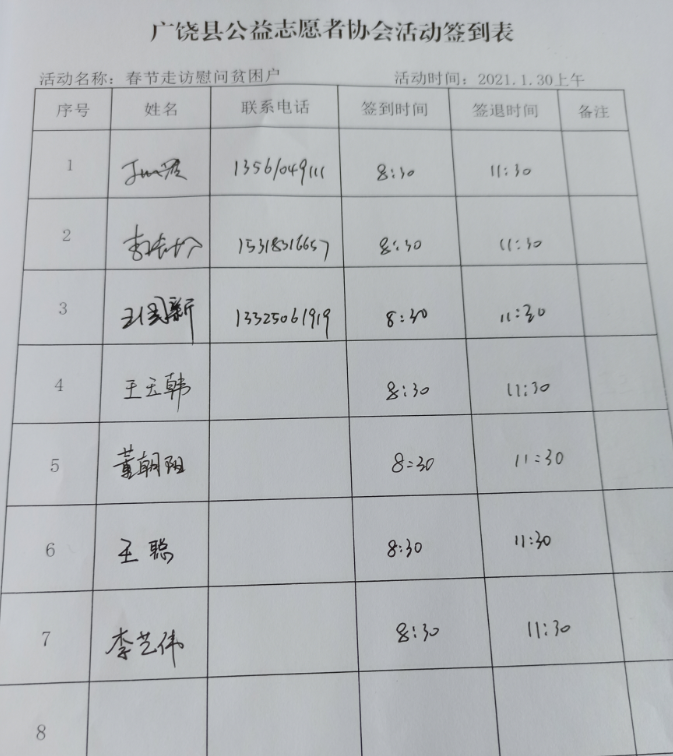 广饶县公益志愿者协会活动签到表
活动名称：春节走访慰问贫困户 活动时间：2021.1.30上午
序号 姓名 联系电话 签到时间 签退时间 备注
1 13561049111 8:30 11:30
2 15318316657 8:30 11:30
3 王国新 13325061919 8:30 11:30
4 王云韩 8:30 11:30
5 董朝阳 8:30 11:30
6 王聪 8:30 11:30
7 李艺伟 8:30 11:30
8